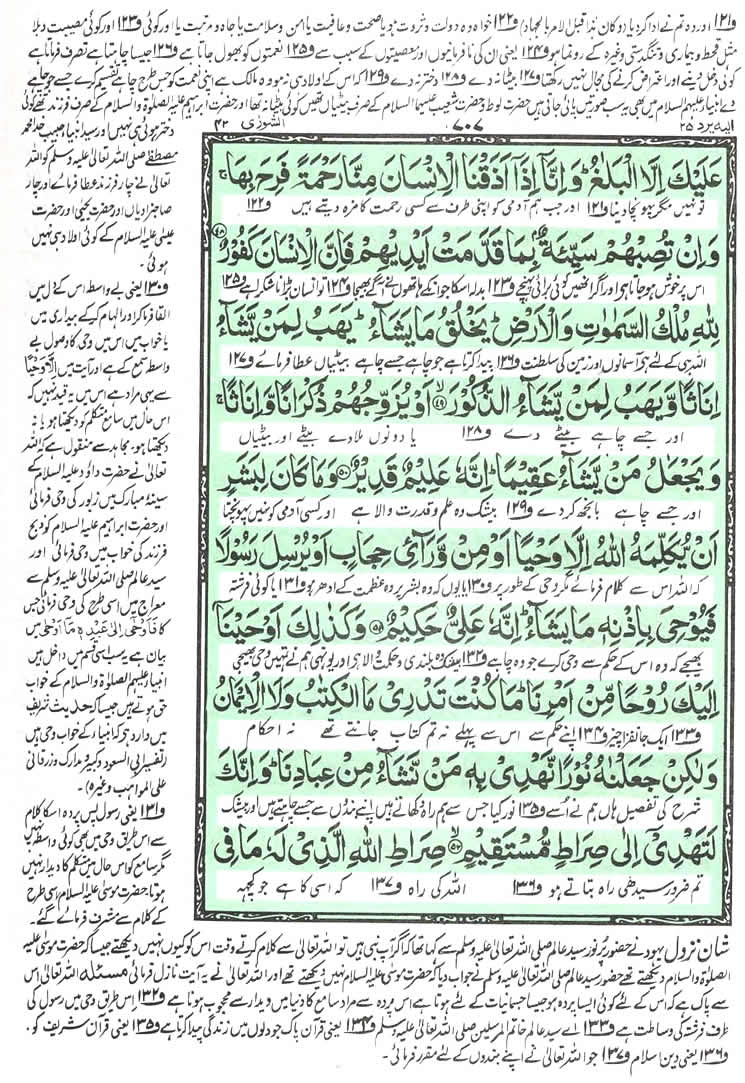 و۱۲۱ اور وہ تم نے ادا کر دیا (وکان ھذا قبل الامر بالجہاد) و۱۲۲ خواہ وہ دولت و ثروت ہو یا صحت و عافیت یا امن و سلامت یا جاہ و مرتبت یا اور کوئی و۱۲۳ اور کوئی مصیبت و بلا
مثل قحط و بیماری و تنگدستی وغیرہ کے رونما ہو و۱۲۴ یعنی ان کی نافرمانیوں اور معصیتوں کے سبب سے و۱۲۵ نعمتوں کو بھول جاتا ہے و۱۲۶ جیسا چاہتا ہے تصرف فرماتا ہے
کوئی دخل دینے اور اعتراض کرنے کی مجال نہیں رکھتا و۱۲۷ بیٹا نہ دے و۱۲۸ دختر نہ دے و۱۲۹ کہ اس کے اولاد ہی نہ ہو وہ مالک ہے اپنی نعمت کو جس طرح چاہے تقسیم کرے جسے جو چاہے
دے انبیاء علیہم السلام میں بھی یہ سب صورتیں پائی جاتی ہیں حضرت لوط و حضرت شعیب علیہما السلام کے صرف بیٹیاں تھیں کوئی بیٹا نہ تھا اور حضرت ابراہیم علیہ الصلوٰۃ والسلام کے صرف فرزند تھے کوئی
الیہ یرد ۲۵
۷۰۷
الشوریٰ ۴۲
عَلَيْكَ اِلَّا الْبَلٰغُ ؕ وَ اِنَّاۤ اِذَاۤ اَذَقْنَا الْاِنْسَانَ مِنَّا رَحْمَةً فَرِحَ بِهَا ۚ
تو نہیں مگر پہونچا دینا و۱۲۱ اور جب ہم آدمی کو اپنی طرف سے کسی رحمت کا مزہ دیتے ہیں و۱۲۲
وَ اِنْ تُصِبْهُمْ سَيِّئَةٌۢ بِمَا قَدَّمَتْ اَيْدِيْهِمْ فَاِنَّ الْاِنْسَانَ كَفُوْرٌ ﴿۴۸﴾
اس پر خوش ہو جاتا ہے اور اگر انھیں کوئی برائی پہنچے و۱۲۳ بدلہ اسکا جو انکے ہاتھوں نے آگے بھیجا و۱۲۴ تو انسان بڑا ناشکرا ہے و۱۲۵
لِلّٰهِ مُلْكُ السَّمٰوٰتِ وَ الْاَرْضِ ؕ يَخْلُقُ مَا يَشَآءُ ؕ يَهَبُ لِمَنْ يَّشَآءُ
اللہ ہی کے لئے ہے آسمانوں اور زمین کی سلطنت و۱۲۶ پیدا کرتا ہے جو چاہے جسے چاہے بیٹیاں عطا فرمائے و۱۲۷
اِنَاثًا وَّ يَهَبُ لِمَنْ يَّشَآءُ الذُّكُوْرَ ﴿۴۹﴾ اَوْ يُزَوِّجُهُمْ ذُكْرَانًا وَّ اِنَاثًا ۚ
اور جسے چاہے بیٹے دے و۱۲۸ یا دونوں ملا دے بیٹے اور بیٹیاں
وَ يَجْعَلُ مَنْ يَّشَآءُ عَقِيْمًا ؕ اِنَّهٗ عَلِيْمٌ قَدِيْرٌ ﴿۵۰﴾ وَ مَا كَانَ لِبَشَرٍ
اور جسے چاہے بانجھ کر دے و۱۲۹ بیشک وہ علم و قدرت والا ہے اور کسی آدمی کو نہیں پہونچتا
اَنْ يُّكَلِّمَهُ اللّٰهُ اِلَّا وَحْيًا اَوْ مِنْ وَّرَآئِ حِجَابٍ اَوْ يُرْسِلَ رَسُوْلًا
کہ اللہ اس سے کلام فرمائے مگر وحی کے طور پر و۱۳۰ یا یوں کہ وہ بشر پردہ عظمت کے ادھر ہو و۱۳۱ یا کوئی فرشتہ
فَيُوْحِيَ بِاِذْنِهٖ مَا يَشَآءُ ؕ اِنَّهٗ عَلِيٌّ حَكِيْمٌ ﴿۵۱﴾ وَ كَذٰلِكَ اَوْحَيْنَاۤ
بھیجے کہ وہ اس کے حکم سے وحی کرے جو وہ چاہے و۱۳۲ بیشک وہ بلندی و حکمت والا ہے اور یونہی ہم نے تمہیں وحی بھیجی
اِلَيْكَ رُوْحًا مِّنْ اَمْرِنَا ؕ مَا كُنْتَ تَدْرِيْ مَا الْكِتٰبُ وَ لَا الْاِيْمَانُ
و۱۳۳ ایک جانفزا چیز و۱۳۴ اپنے حکم سے اس سے پہلے نہ تم کتاب جانتے تھے نہ احکام
وَ لٰكِنْ جَعَلْنٰهُ نُوْرًا نَّهْدِيْ بِهٖ مَنْ نَّشَآءُ مِنْ عِبَادِنَا ؕ وَ اِنَّكَ
شرع کی تفصیل ہاں ہم نے اُسے و۱۳۵ نور کیا جس سے ہم راہ دکھاتے ہیں اپنے بندوں سے جسے چاہتے ہیں اور بیشک
لَتَهْدِيْۤ اِلٰى صِرَاطٍ مُّسْتَقِيْمٍ ﴿۵۲﴾ صِرَاطِ اللّٰهِ الَّذِيْ لَهٗ مَا فِي
تم ضرور سیدھی راہ بتاتے ہو و۱۳۶ اللہ کی راہ و۱۳۷ کہ اسی کا ہے جو کچھ
دختر ہوئی ہی نہیں اور سید انبیاء حبیب خدا محمد
مصطفےٰ صلی اللہ تعالیٰ علیہ وسلم کو اللہ
تعالیٰ نے چار فرزند عطا فرمائے اور چار
صاحبزادیاں اور حضرت یحییٰ اور حضرت
عیسیٰ علیہ السلام کے کوئی اولاد ہی نہیں
ہوئی۔
و۱۳۰ یعنی بے واسطہ اس کے دل میں
القا فرما کر اور الہام کر کے بیداری میں
یا خواب میں اس میں وحی کا وصول بے
واسطہ سمع کے ہے اور آیت میں اِلَّا وَحْیًا
سے یہی مراد ہے اس میں یہ قید نہیں کہ
اس حال میں سامع متکلم کو دیکھتا ہو یا نہ
دیکھتا ہو۔ مجاہد سے منقول ہے کہ اللہ
تعالیٰ نے حضرت داؤد علیہ السلام کے
سینۂ مبارک میں زبور کی وحی فرمائی
اور حضرت ابراہیم علیہ السلام کو ذبح
فرزند کی خواب میں وحی فرمائی اور
سید عالم صلی اللہ تعالیٰ علیہ وسلم سے
معراج میں اسی طرح کی وحی فرمائی جس
کا فَاَوْحٰی اِلٰی عَبْدِہٖ مَا اَوْحٰی میں
بیان ہے یہ سب اسی قسم میں داخل ہیں
انبیاء علیہم الصلوٰۃ والسلام کے خواب
حق ہوتے ہیں جیسا کہ حدیث شریف
میں وارد ہے کہ انبیاء کے خواب وحی ہیں
(تفسیر ابی السعود و کبیر و مدارک و زرقانی
علی المواہب وغیرہ)۔
و۱۳۱ یعنی رسول پس پردہ اس کا کلام
سے اس طریق وحی میں بھی کوئی واسطہ نہیں
مگر سامع کو اس حال میں متکلم کا دیدار نہیں
ہوتا حضرت موسیٰ علیہ السلام اسی طرح
کے کلام سے مشرف فرمائے گئے۔
شان نزول یہود نے حضور پر نور سید عالم صلی اللہ تعالیٰ علیہ وسلم سے کہا تھا کہ اگر آپ نبی ہیں تو اللہ تعالیٰ سے کلام کرتے وقت اس کو کیوں نہیں دیکھتے جیسا کہ حضرت موسیٰ علیہ
الصلوٰۃ والسلام دیکھتے تھے حضور سید عالم صلی اللہ تعالیٰ علیہ وسلم نے جواب دیا کہ حضرت موسیٰ علیہ السلام نہیں دیکھتے تھے اور اللہ تعالیٰ نے یہ آیت نازل فرمائی مسئلہ اللہ تعالیٰ اس
سے پاک ہے کہ اس کے لئے کوئی ایسا پردہ ہو جیسا جسمانیات کے لئے ہوتا ہے اس پردہ سے مراد سامع کا دنیا میں دیدار سے محجوب ہونا ہے و۱۳۲ اس طریق وحی میں رسول کی
طرف فرشتہ کی وساطت ہے و۱۳۳ اے سید عالم خاتم المرسلین صلی اللہ تعالیٰ علیہ وسلم و۱۳۴ یعنی قرآن پاک جو دلوں میں زندگی پیدا کرتا ہے و۱۳۵ یعنی قرآن شریف کو۔
و۱۳۶ یعنی دین اسلام و۱۳۷ جو اللہ تعالیٰ نے اپنے بندوں کے لئے مقرر فرمائی۔